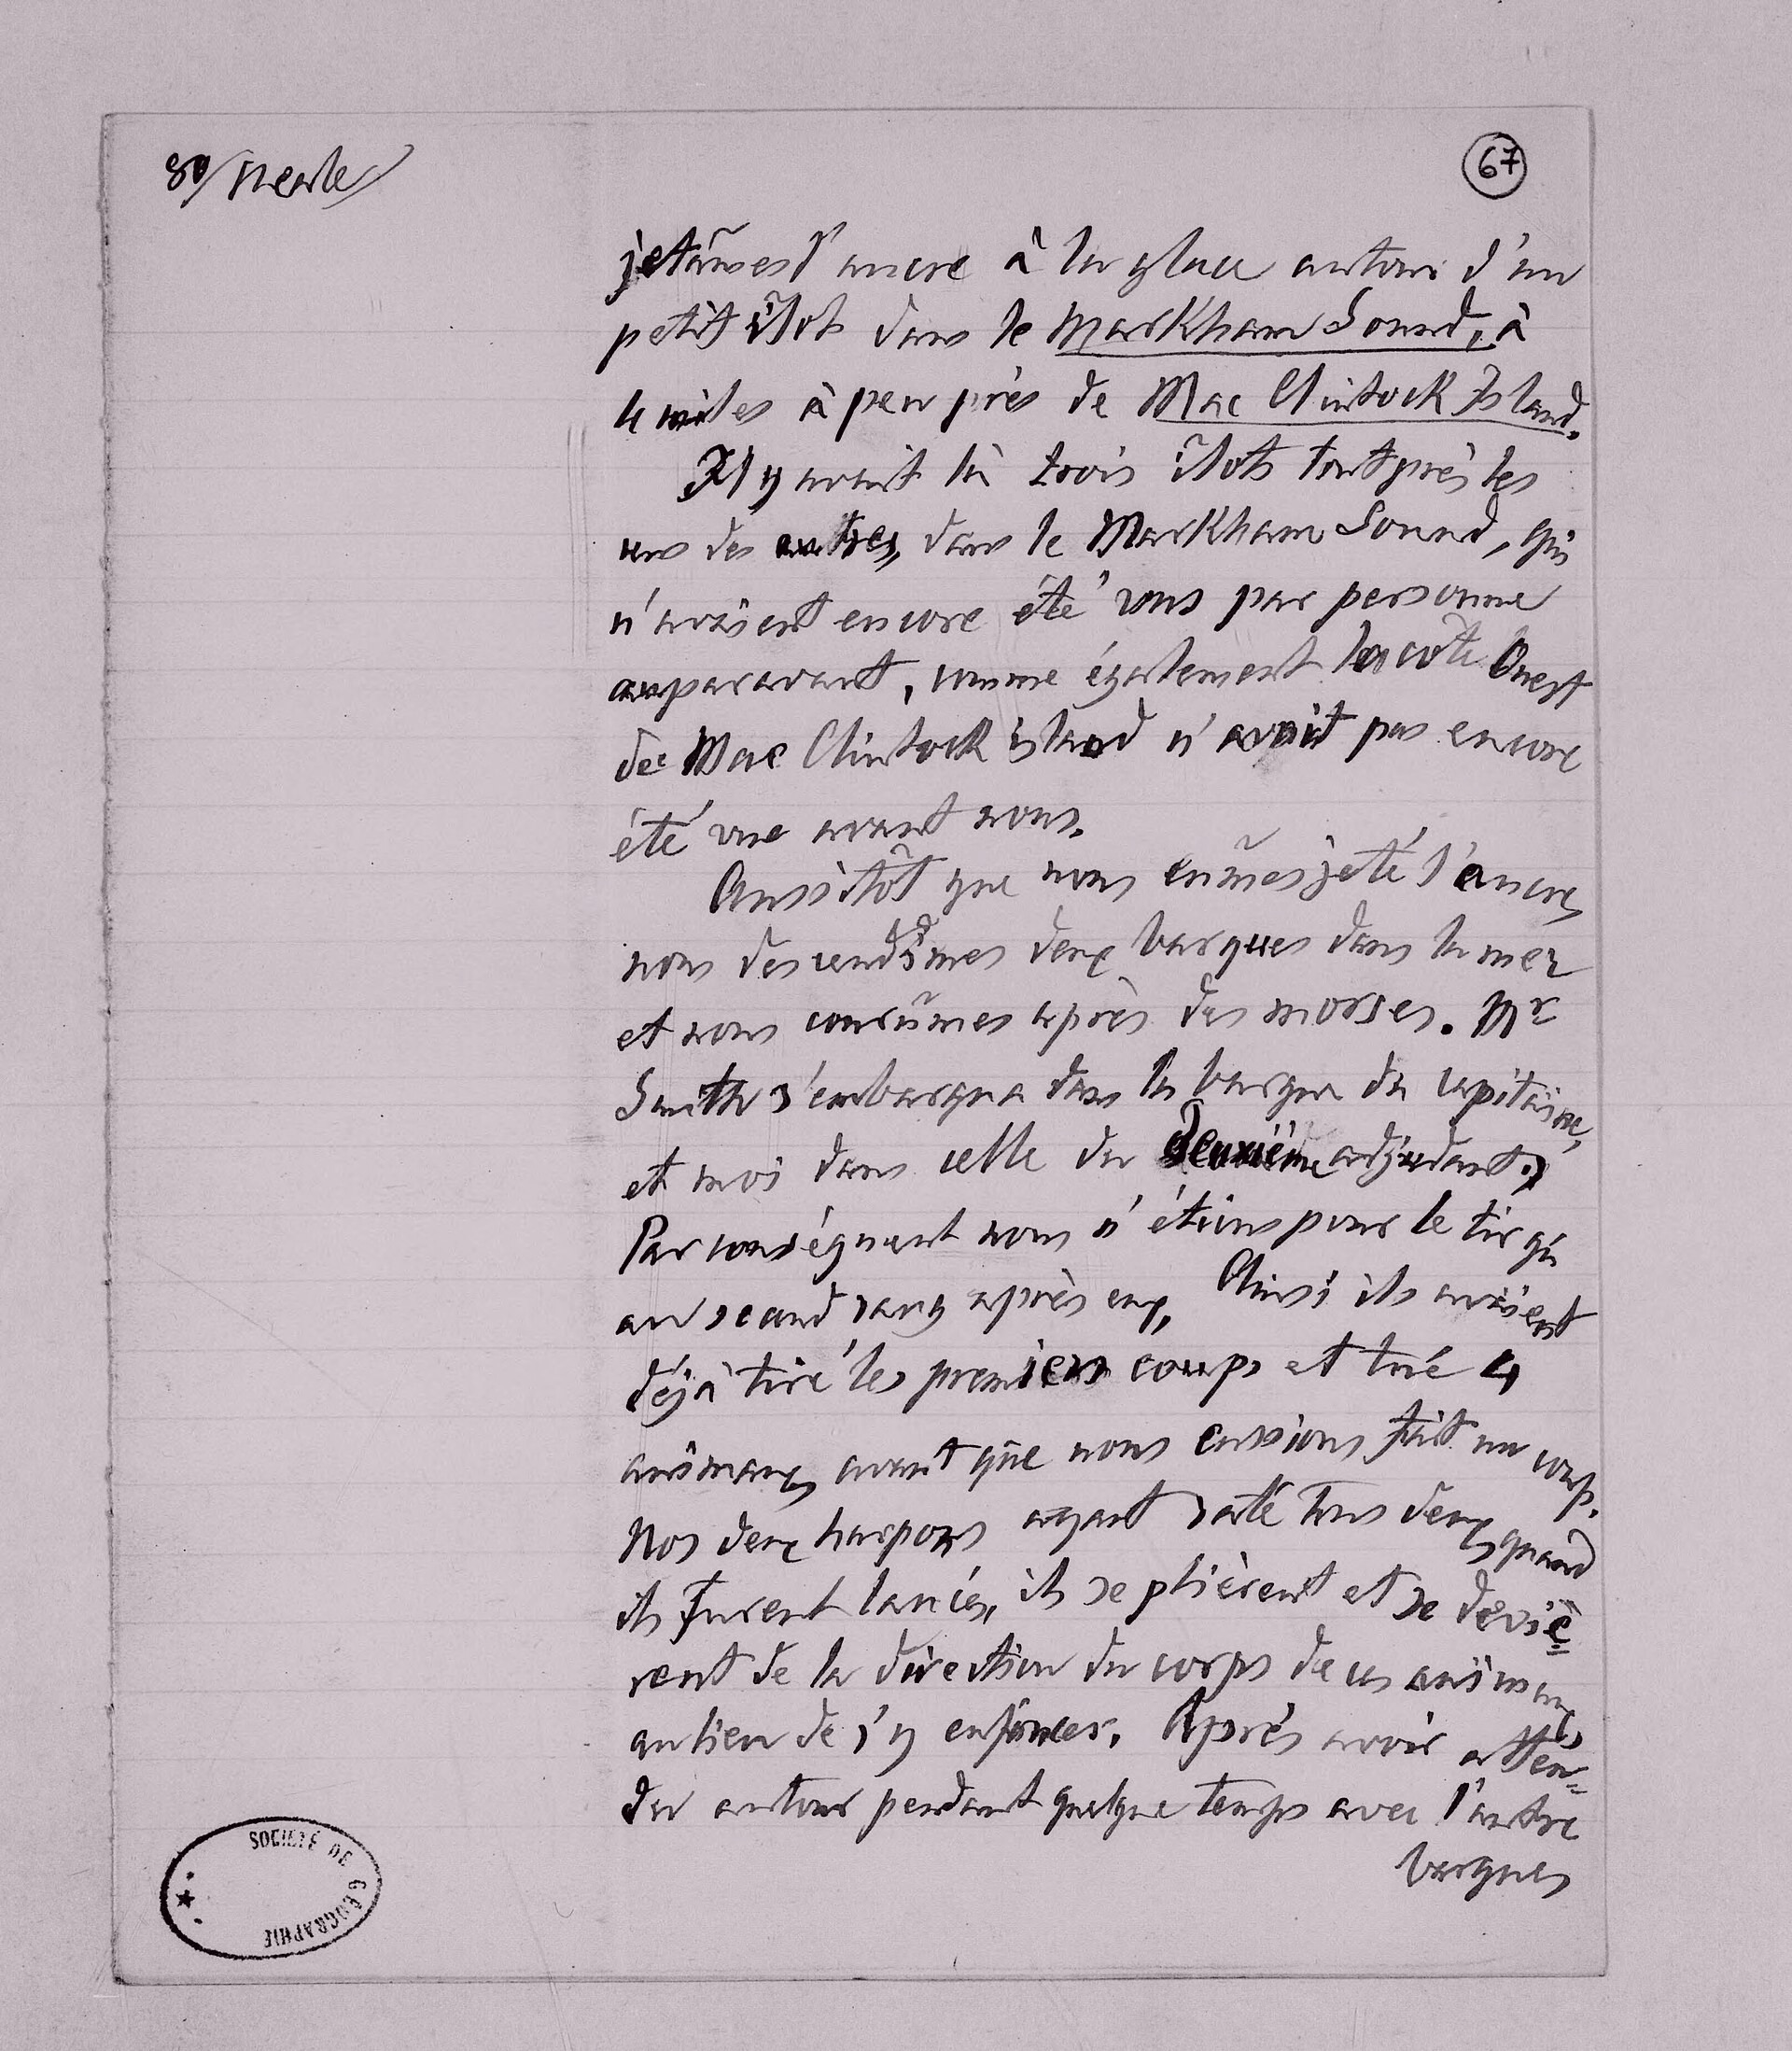 67
jetâmes l'ancre à la glace autour d'un
petit îlot dans le Markham Sound, à
4 miles à peu près de Mac Clintock Island.
Il y avait là trois îlots tout près les
uns des autres, dans le Markham Sound, qui
n'avaient encore été vus par personne
auparavant, comme également la côte Ouest
de Mac Clintock island n'avait pas encore
été vue avant nous.
Aussitôt que nous eûmes jeté l'ancre,
nous descendîmes deux barques dans la mer
et nous courûmes après des morses. Mr
Smith s'embarqua dans la barque du capitaine,
et moi dans celle du deuxième adjudant.
Par conséquent nous n'étions pour le tir qu'
au second rang après eux. Ainsi ils avaient
déjà tiré les premiers coups et tué 4
animaux, avant que nous eussions fait un coup.
Nos deux harpons ayant raté tous deux, quand
ils furent lancés, ils se plièrent et se deviè-
rent de la direction du corps de ces animaux,
au lieu de s'y enfoncer. Après avoir atten-
du autour pendant quelque temps avec l'autre
barque,
SOCIÉTÉ DE GEOGRAPHIE